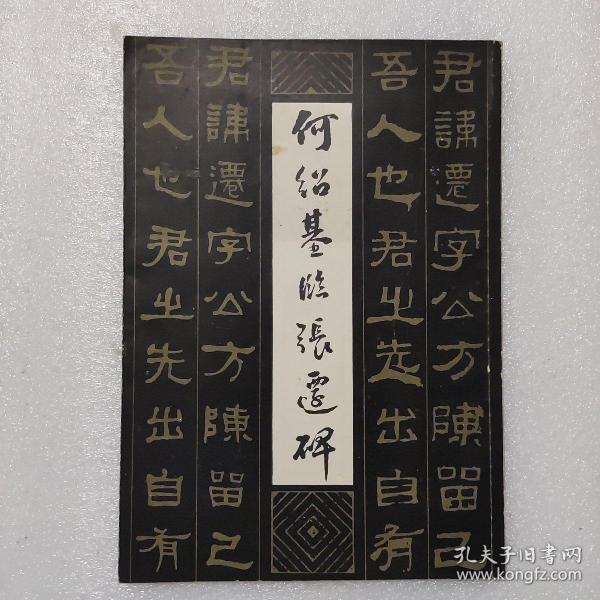 君諱遷字公方陳留己
吾人也君之先出自有
何紹基臨張遷碑
君諱遷字公方陳留己
吾人也君之先出自有
孔夫子旧书网
www.kongfz.com